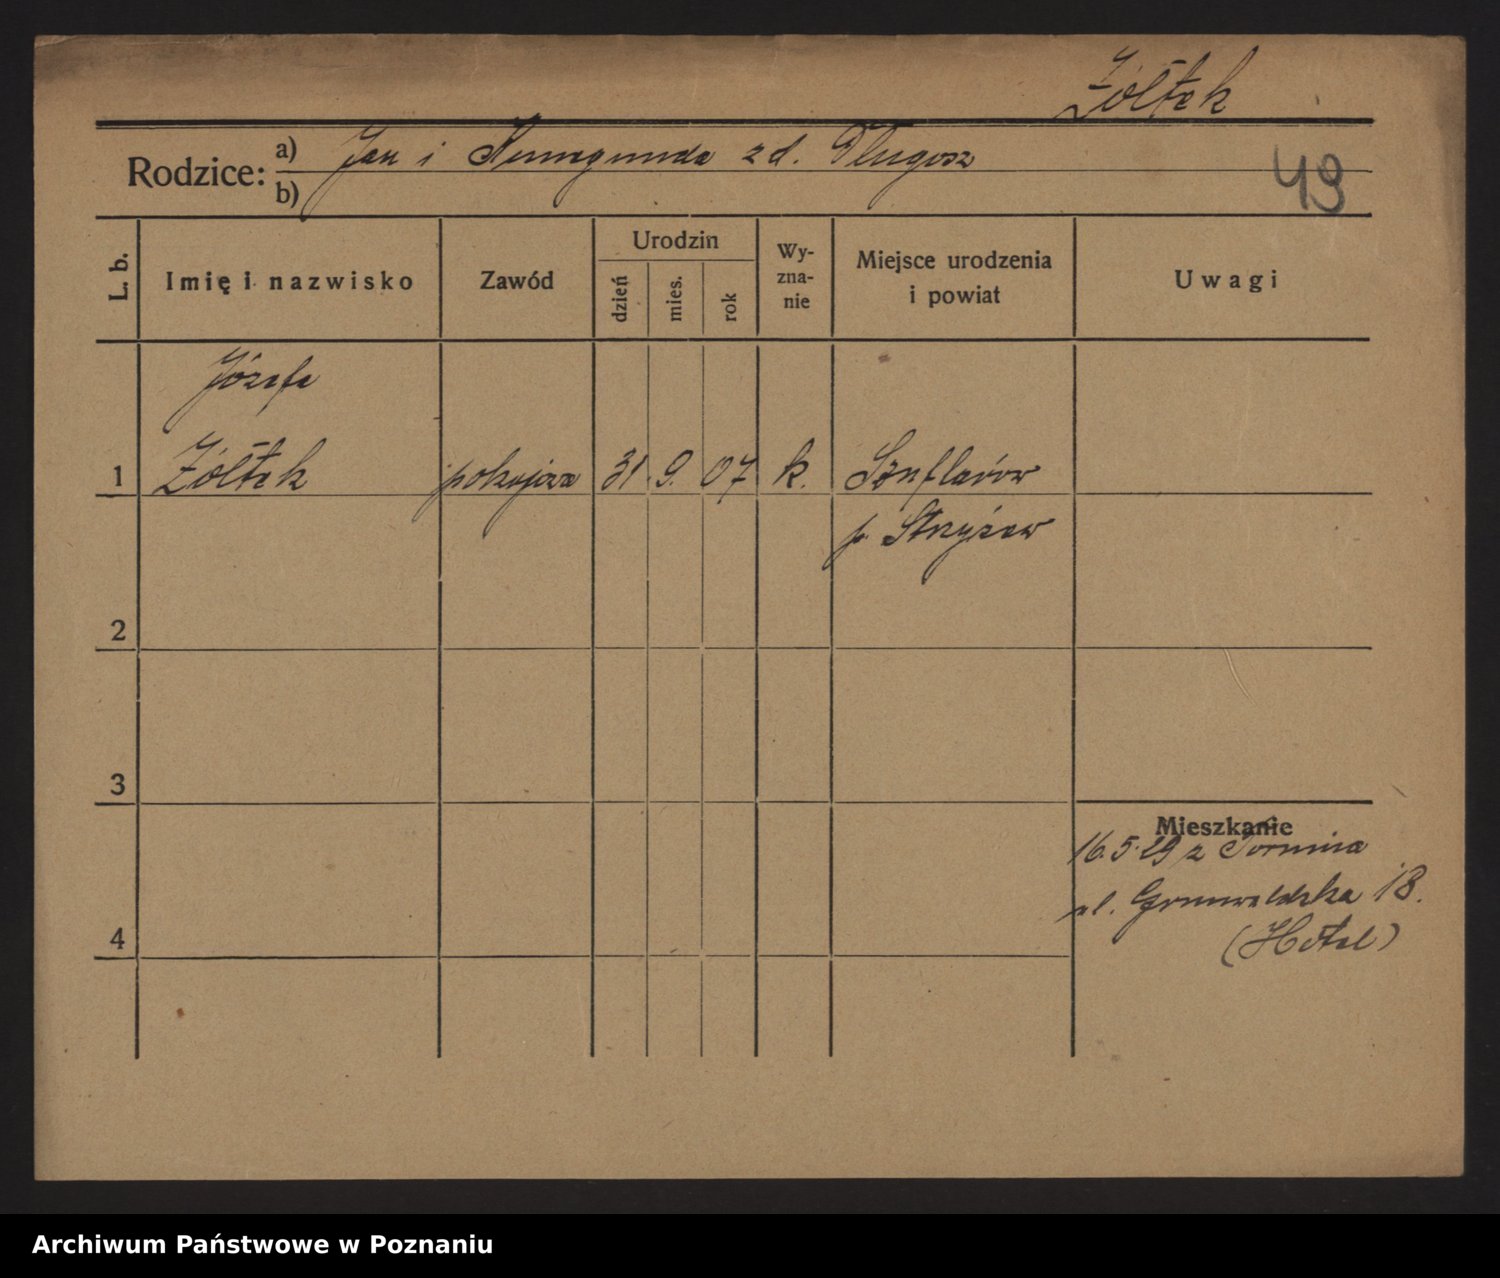 Żółtek
Rodzice: a) Jan i Kunegunda zd. Długosz
b)
49
L. b. Imię i nazwisko Zawód Urodzin dzień mies. rok Wy-zna-nie Miejsce urodzenia i powiat Uwagi
Józefa
1 Żółtek pokojowa 31. 9. 07 k. Szuflarów
p. Strzyżew
2
3
Mieszkanie
16.5.29 z Torunia
ul. Grunwaldzka 18.
4 (Hotel)
Archiwum Państwowe w Poznaniu